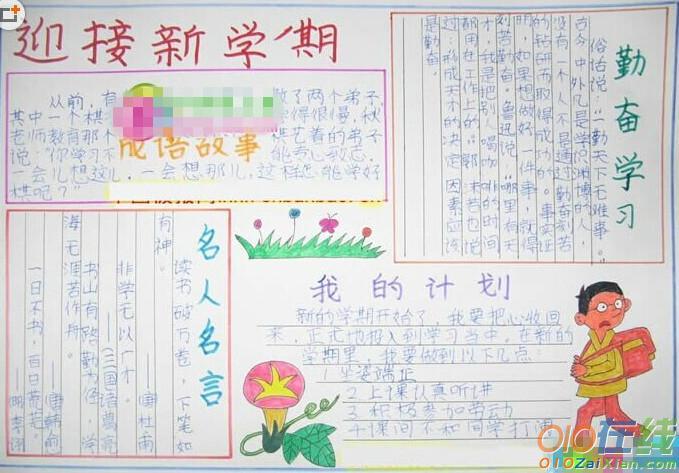 迎接新学期
从前,有
教了两个弟子,
其中一个棋
学得很慢,秋
老师教育那个
棋艺差的弟子
说:"你学习不
能专心致志,
一会儿想这儿,一会想那儿,这样怎能学好
棋呢?"
成语故事
勤奋学习
俗话说:"勤天下无难事。"
古今中外凡是学识渊博的人,
没有一个人不是通过勤奋刻苦
的钻研而取得成功的。事实证
明,如果想做好一件事,就得
刻苦勤奋。鲁迅说:"哪里有天
才,我是把别人喝咖啡的时间
都用在工作上的。"郭沫若也说
过:形成天才的决定因素应该
是勤奋。
名人名言
读书破万卷,下笔如
有神。
——唐杜甫
非学无以广才。
——《三国诸葛亮
书山有路勤为径,学
海无涯苦作舟。
——唐韩愈
一日不书,百日荒芜。
——明李诩
我的计划
新的学期开始了,我要把心收回
来,正式地投入到学习当中。在新的
学期里,我要做到以下几点:
1坐姿端正
2上课认真听讲
3积极参加劳动
4课间不和同学打
010在线
010ZaiXian.com